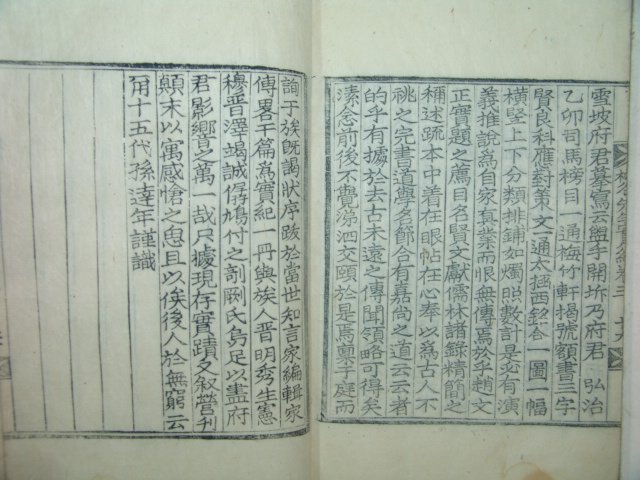 雪坡府君摹寫云盥手開坼乃府君弘治
乙卯司馬榜目一通梅竹軒揭號額書三字
賢良科應對策文一通太極西銘合一圖一幅
橫竪上下分類排鋪如燭照數計是必有演
義推說爲自家眞業而眼無傳焉於乎趙文
正實題之薦目名賢文獻儒林諸錄精簡之
稱述疏本中着在眼帖在心奉以爲古人不
祧之完書道學名節合有嘉尚之道云云者
的乎有據於去古未遠之傳聞領略可得矣
溸念前後不覺涕泗交頤於是焉稟于庭而
詢于族旣謁狀序跋於當世知言家編輯家
傳畧干篇爲實紀一冊與族人晋明秀生憲
穆晋澤竭誠僝鳩付之剞劂氏烏足以盡府
君影響之萬一哉只據現存實蹟又叙營刊
顚末以寓感愴之思且以俟後人於無窮云
爾十五代孫達年謹識